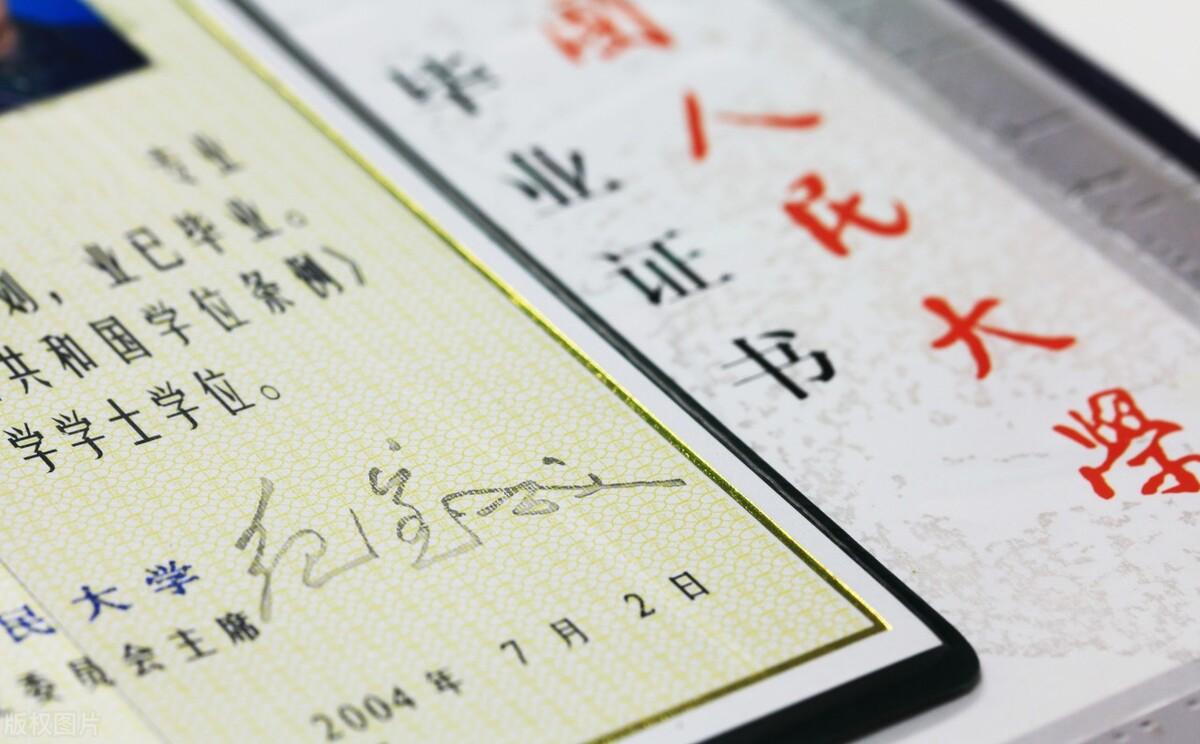 专业
划，业已毕业。
共和国学位条例》
学学士学位。
纪宝成
民大学
委员会主席
2004年7月2日
毕业证书
国人民大学
版权图片